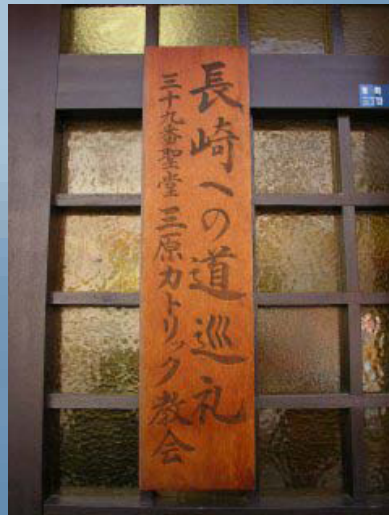 長崎への道巡礼
三十九番聖堂 三原カトリック教会